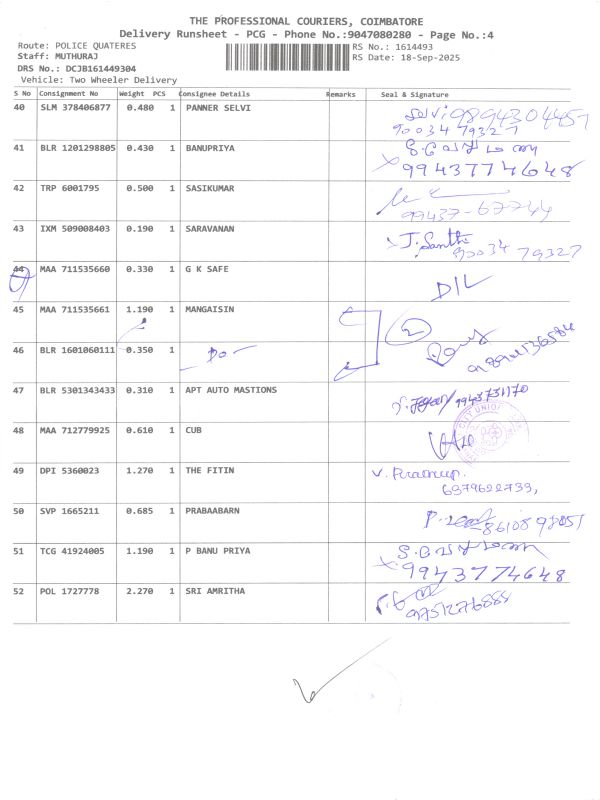 THE PROFESSIONAL COURIERS, COIMBATORE
Delivery Runsheet - PCG - Phone No.:9047080280 - Page No.:4
Route: POLICE QUATERES RS No.: 1614493
Staff: MUTHURAJ RS Date: 18-Sep-2025
DRS No.: DCJB161449304
Vehicle: Two Wheeler Delivery
S No Consignment No Weight PCS Consignee Details Remarks Seal & Signature
40 SLM 378406877 0.480 1 PANNER SELVI
90034 79327
41 BLR 1201298805 0.430 1 BANUPRIYA
9943774648
42 TRP 6001795 0.500 1 SASIKUMAR
99437-67744
43 IXM 509008403 0.190 1 SARAVANAN J. Santhi
90034 79327
44 MAA 711535660 0.330 1 G K SAFE D/L
45 MAA 711535661 1.190 1 MANGAISIN 2
46 BLR 1601060111 0.350 1 -Do-
47 BLR 5301343433 0.310 1 APT AUTO MASTIONS 9943731170
48 MAA 712779925 0.610 1 CUB
CITY UNION
49 DPI 5360023 1.270 1 THE FITIN
6379622733,
50 SVP 1665211 0.685 1 PRABAABARN
51 TCG 41924005 1.190 1 P BANU PRIYA
9943774648
52 POL 1727778 2.270 1 SRI AMRITHA
9751276888